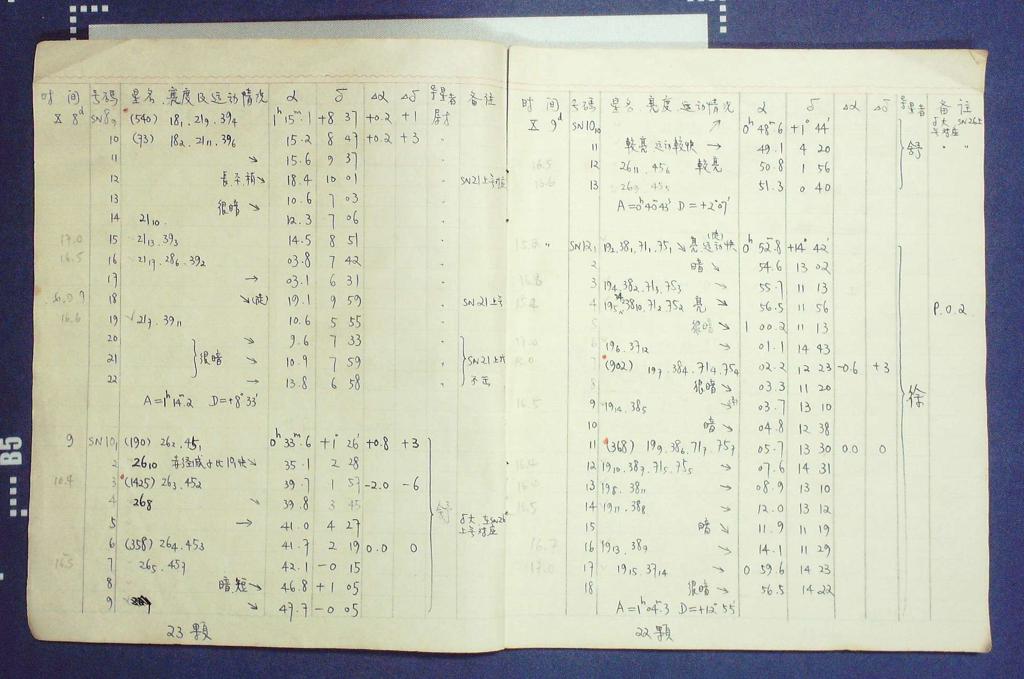 时 间 号碼 星名、亮度及运动情况 α δ Δα Δδ 备注
X 8d SN8 9 (540) 18₁ 21₉ 39₄ 1h 15m.1 +8 37 +0.2 +1
10 (93) 18₂ 21₁₁ 39₆ 15.2 8 47 +0.2 +3
11 ↘ 15.6 9 37
12 ↘ 18.4 10 01
13 很暗 ↘ 10.6 7 03
14 21₁₀ 12.3 7 06
17.0 15 21₁₃ 39₃ 14.5 8 51
16.5 16 28₆ 39₂ 03.8 7 42
17 → 03.1 6 31
18 ↘ 19.1 9 59 SN21上
16.6 19 21₇ 39₁₁ 10.6 5 55
20 ↘ 9.6 7 33
21 很暗 → 10.9 7 59
22 → 13.8 6 58
A=1h 14m.2 D=+8° 33'
9 SN10₁ (190) 26₂ 45₁ 0h 33m.6 +1° 26' +0.8 +3
2 26₁₀ ↘ 35.1 2 28
10.4 3 (1425) 26₃ 45₂ 39.7 1 57 -2.0 -6
4 26₈ ↘ 39.8 3 45 舒
5 → 41.0 4 27
6 (358) 26₄ 45₃ 41.7 2 19 0.0 0
16.5 7 26₅ 45₇ 42.1 -0 15
8 暗.短 ↘ 46.8 +1 05
9 ↘ 47.7 -0 05
23 顆
时 间 号碼 星名、亮度 运动情况 α δ Δα Δδ 备注
X 9d SN10 10 ↗ 0h 48m.6 +1° 44'
11 較亮 运动較快 → 49.1 4 20 舒
16.5 12 26₁₁ 45₆ 較亮 50.8 1 56
13 51.3 0 40
A=0h 40m 43' D=+2° 07'
SN12₁ 19₂ 38₁ 71₁ 75₁ ↘ 亮 运动快 0h 52m.8 +14° 42'
2 暗 ↘ 54.6 13 02
3 19₄ 38₂ 71₃ 75₃ 55.7 11 13
4 38₁₀ 71₂ 75₂ 亮 56.5 11 56 P.O.2
5 很暗 1 00.2 11 13
6 19₆ 37₁₂ 01.1 14 43
7 (902) 19₇ 38₄ 71₄ 75₄ 02.2 12 23 -0.6 +3
8 很暗 03.3 11 20
16.5 9 19₁₄ 38₅ 03.7 13 10 徐
10 暗 04.8 12 38
11 (368) 19₉ 38₆ 71₇ 75₇ 05.7 13 30 0.0 0
12 19₁₀ 38₇ 71₅ 75₅ ↘ 07.6 14 31
13 19₈ 38₁₁ ↘ 08.9 13 10
14 19₁₁ 38₈ → 12.0 13 12
15 暗 ↘ 11.9 11 19
16.7 16 19₁₃ 38₉ ↘ 14.1 11 29
17.0 17 19₁₅ 37₁₄ ↘ 0 59.6 14 23
18 很暗 ↘ 56.5 14 22
A=1h 04m.3 D=+12° 55'
22 顆
B5